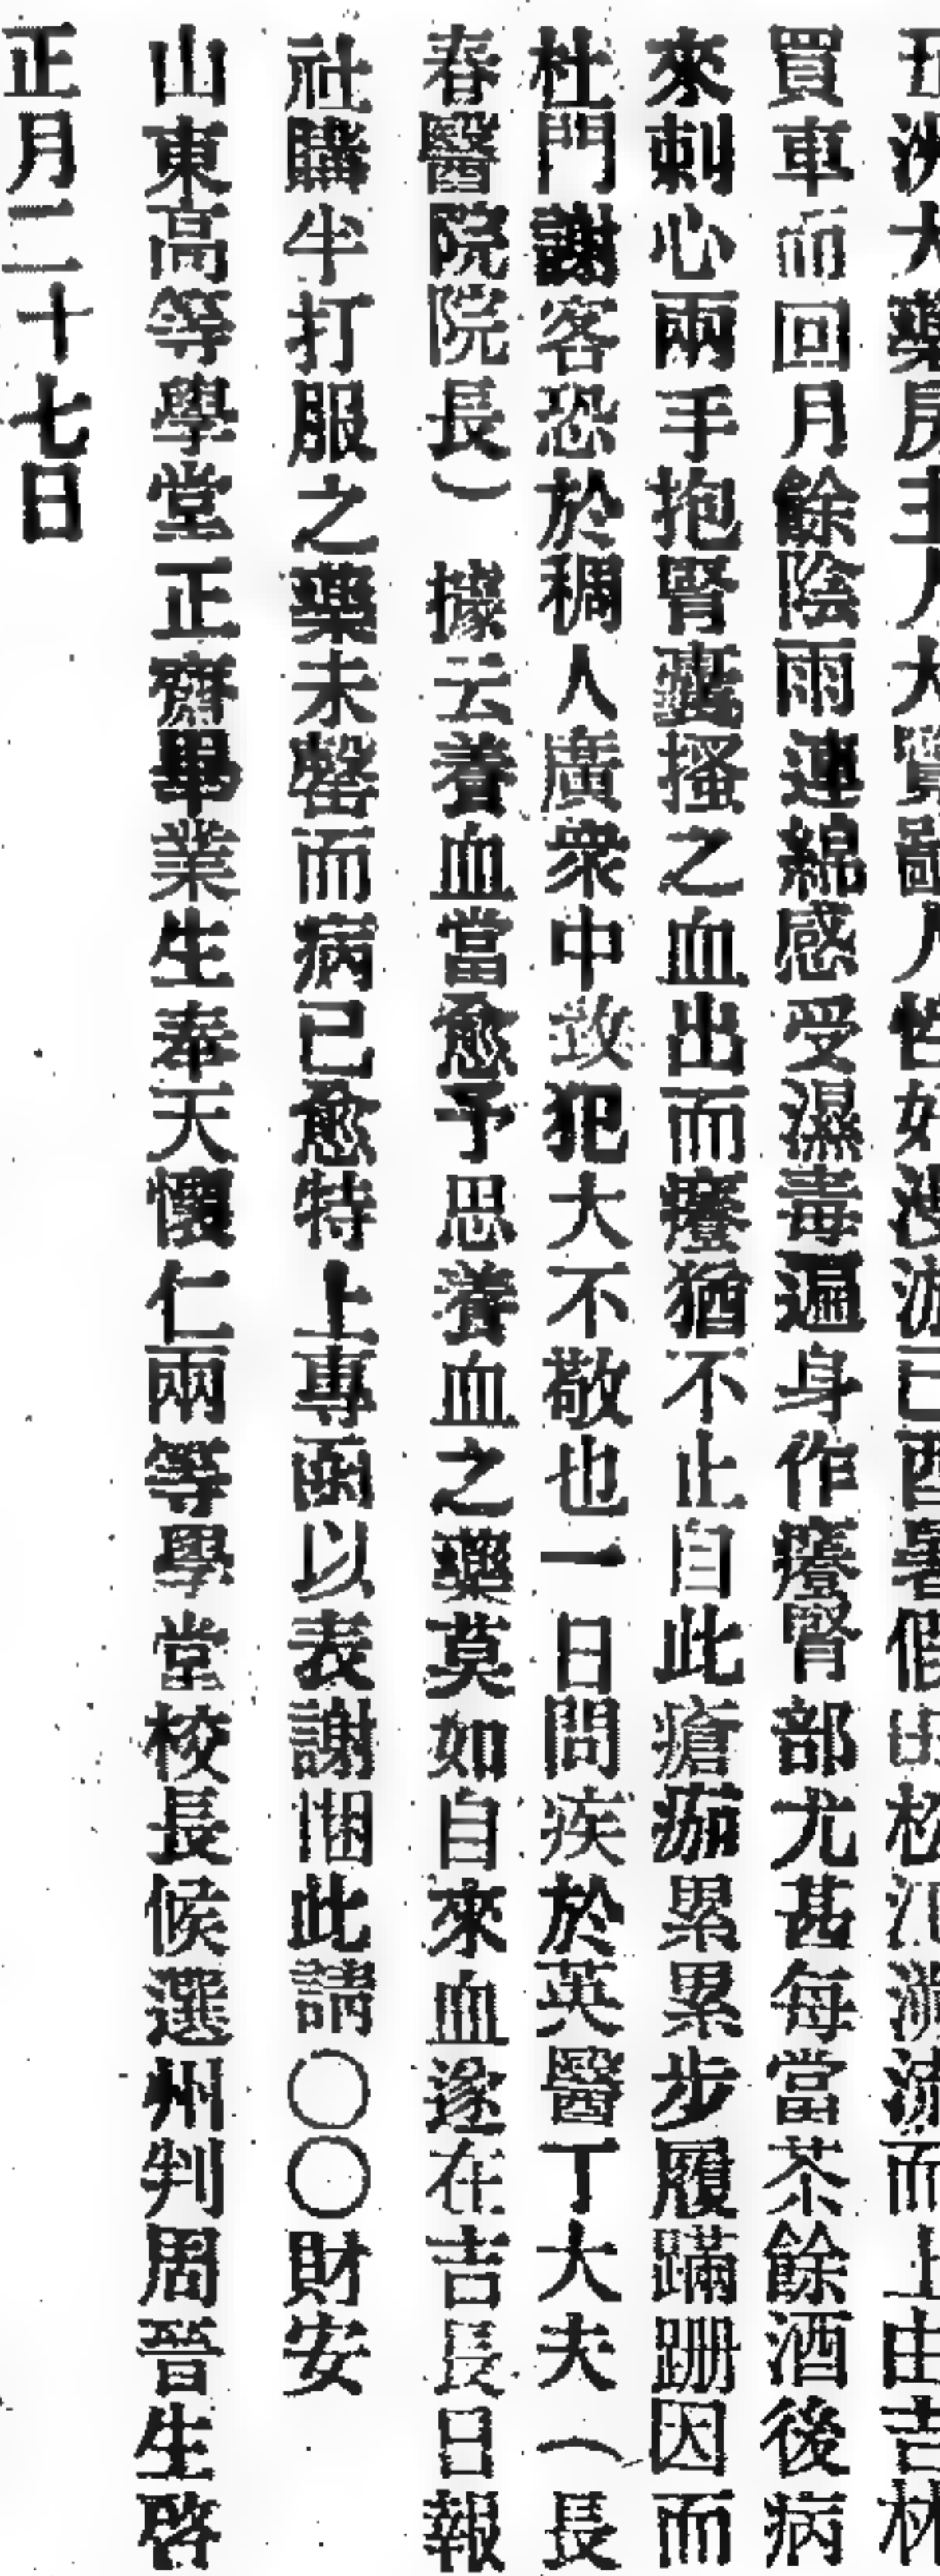 五洲大藥房主人大寶鄙人性好漫游己酉暑假由松江溯流而上由吉林
買車而回月餘陰雨連綿感受濕毒遍身作癢腎部尤甚每當茶餘酒後病
來刺心兩手抱腎囊搔之血出而癢猶不止自此瘡痂累累步履蹣跚因而
杜門謝客恐於稠人廣衆中致犯大不敬也一日問疾於英醫丁大夫（長
春醫院院長）據云養血當愈予思養血之藥莫如自來血遂在吉長日報
社購半打服之藥未罄而病已愈特上專函以表謝悃此請〇〇財安
山東高等學堂正齋畢業生奉天懷仁兩等學堂校長候選州判周晉生啓
正月二十七日